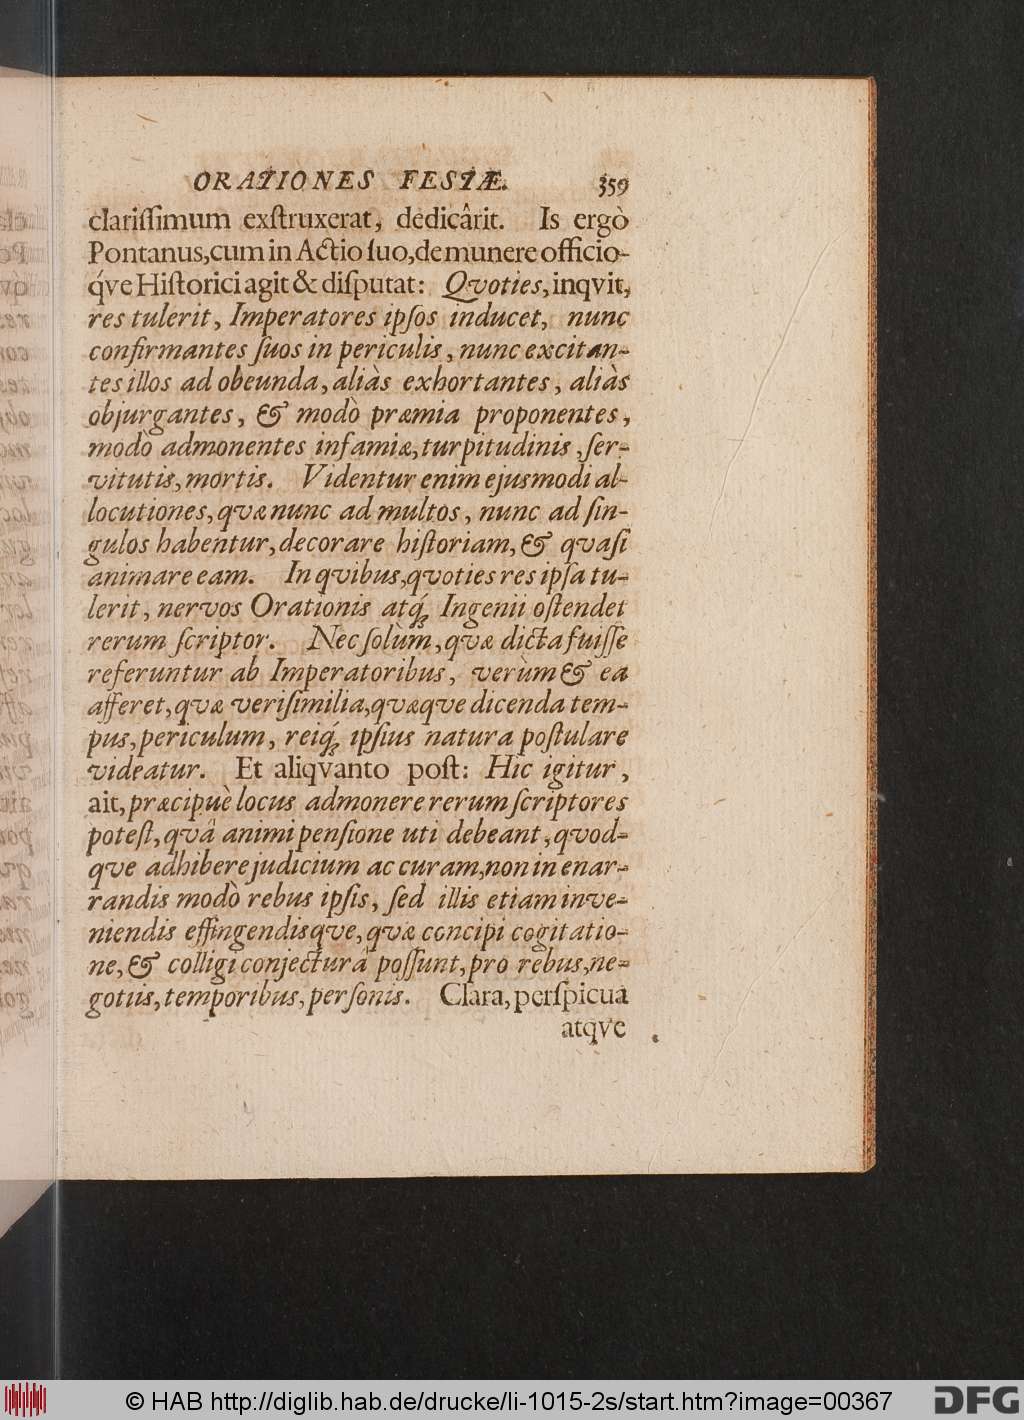 ORATIONES FESTÆ. 359
clariſſimum exſtruxerat, dedicârit. Is ergò
Pontanus,cum in Actio ſuo,de munere officio-
q́ve Hiſtorici agit & diſputat: Qvoties, inqvit,
res tulerit, Imperatores ipſos inducet, nunc
confirmantes ſuos in periculis, nunc excitan-
tes illos ad obeunda, aliàs exhortantes, aliàs
objurgantes, & modò præmia proponentes,
modò admonentes infamiæ, turpitudinis, ſer-
vitutis, mortis. Videntur enim ejusmodi al-
locutiones, qvæ nunc ad multos, nunc ad ſin-
gulos habentur, decorare hiſtoriam, & qvaſi
animare eam. In qvibus, qvoties res ipſa tu-
lerit, nervos Orationis atq́; Ingenii oſtendet
rerum ſcriptor. Nec ſolùm, qvæ dicta fuiſſe
referuntur ab Imperatoribus, verùm & ea
afferet, qvæ veriſimilia, qvæqve dicenda tem-
pus, periculum, reiq́; ipſius natura poſtulare
videatur. Et aliqvanto poſt: Hic igitur,
ait, præcipuè locus admonere rerum ſcriptores
poteſt, qvâ animi penſione uti debeant, qvod-
qve adhibere judicium ac curam, non in enar-
randis modò rebus ipſis, ſed illis etiam inve-
niendis effingendisqve, qvæ concipi cogitatio-
ne, & colligi conjecturâ poſſunt, pro rebus, ne-
gotiis, temporibus, perſonis. Clara, perſpicua
atqve
© HAB http://diglib.hab.de/drucke/li-1015-2s/start.htm?image=00367
DFG